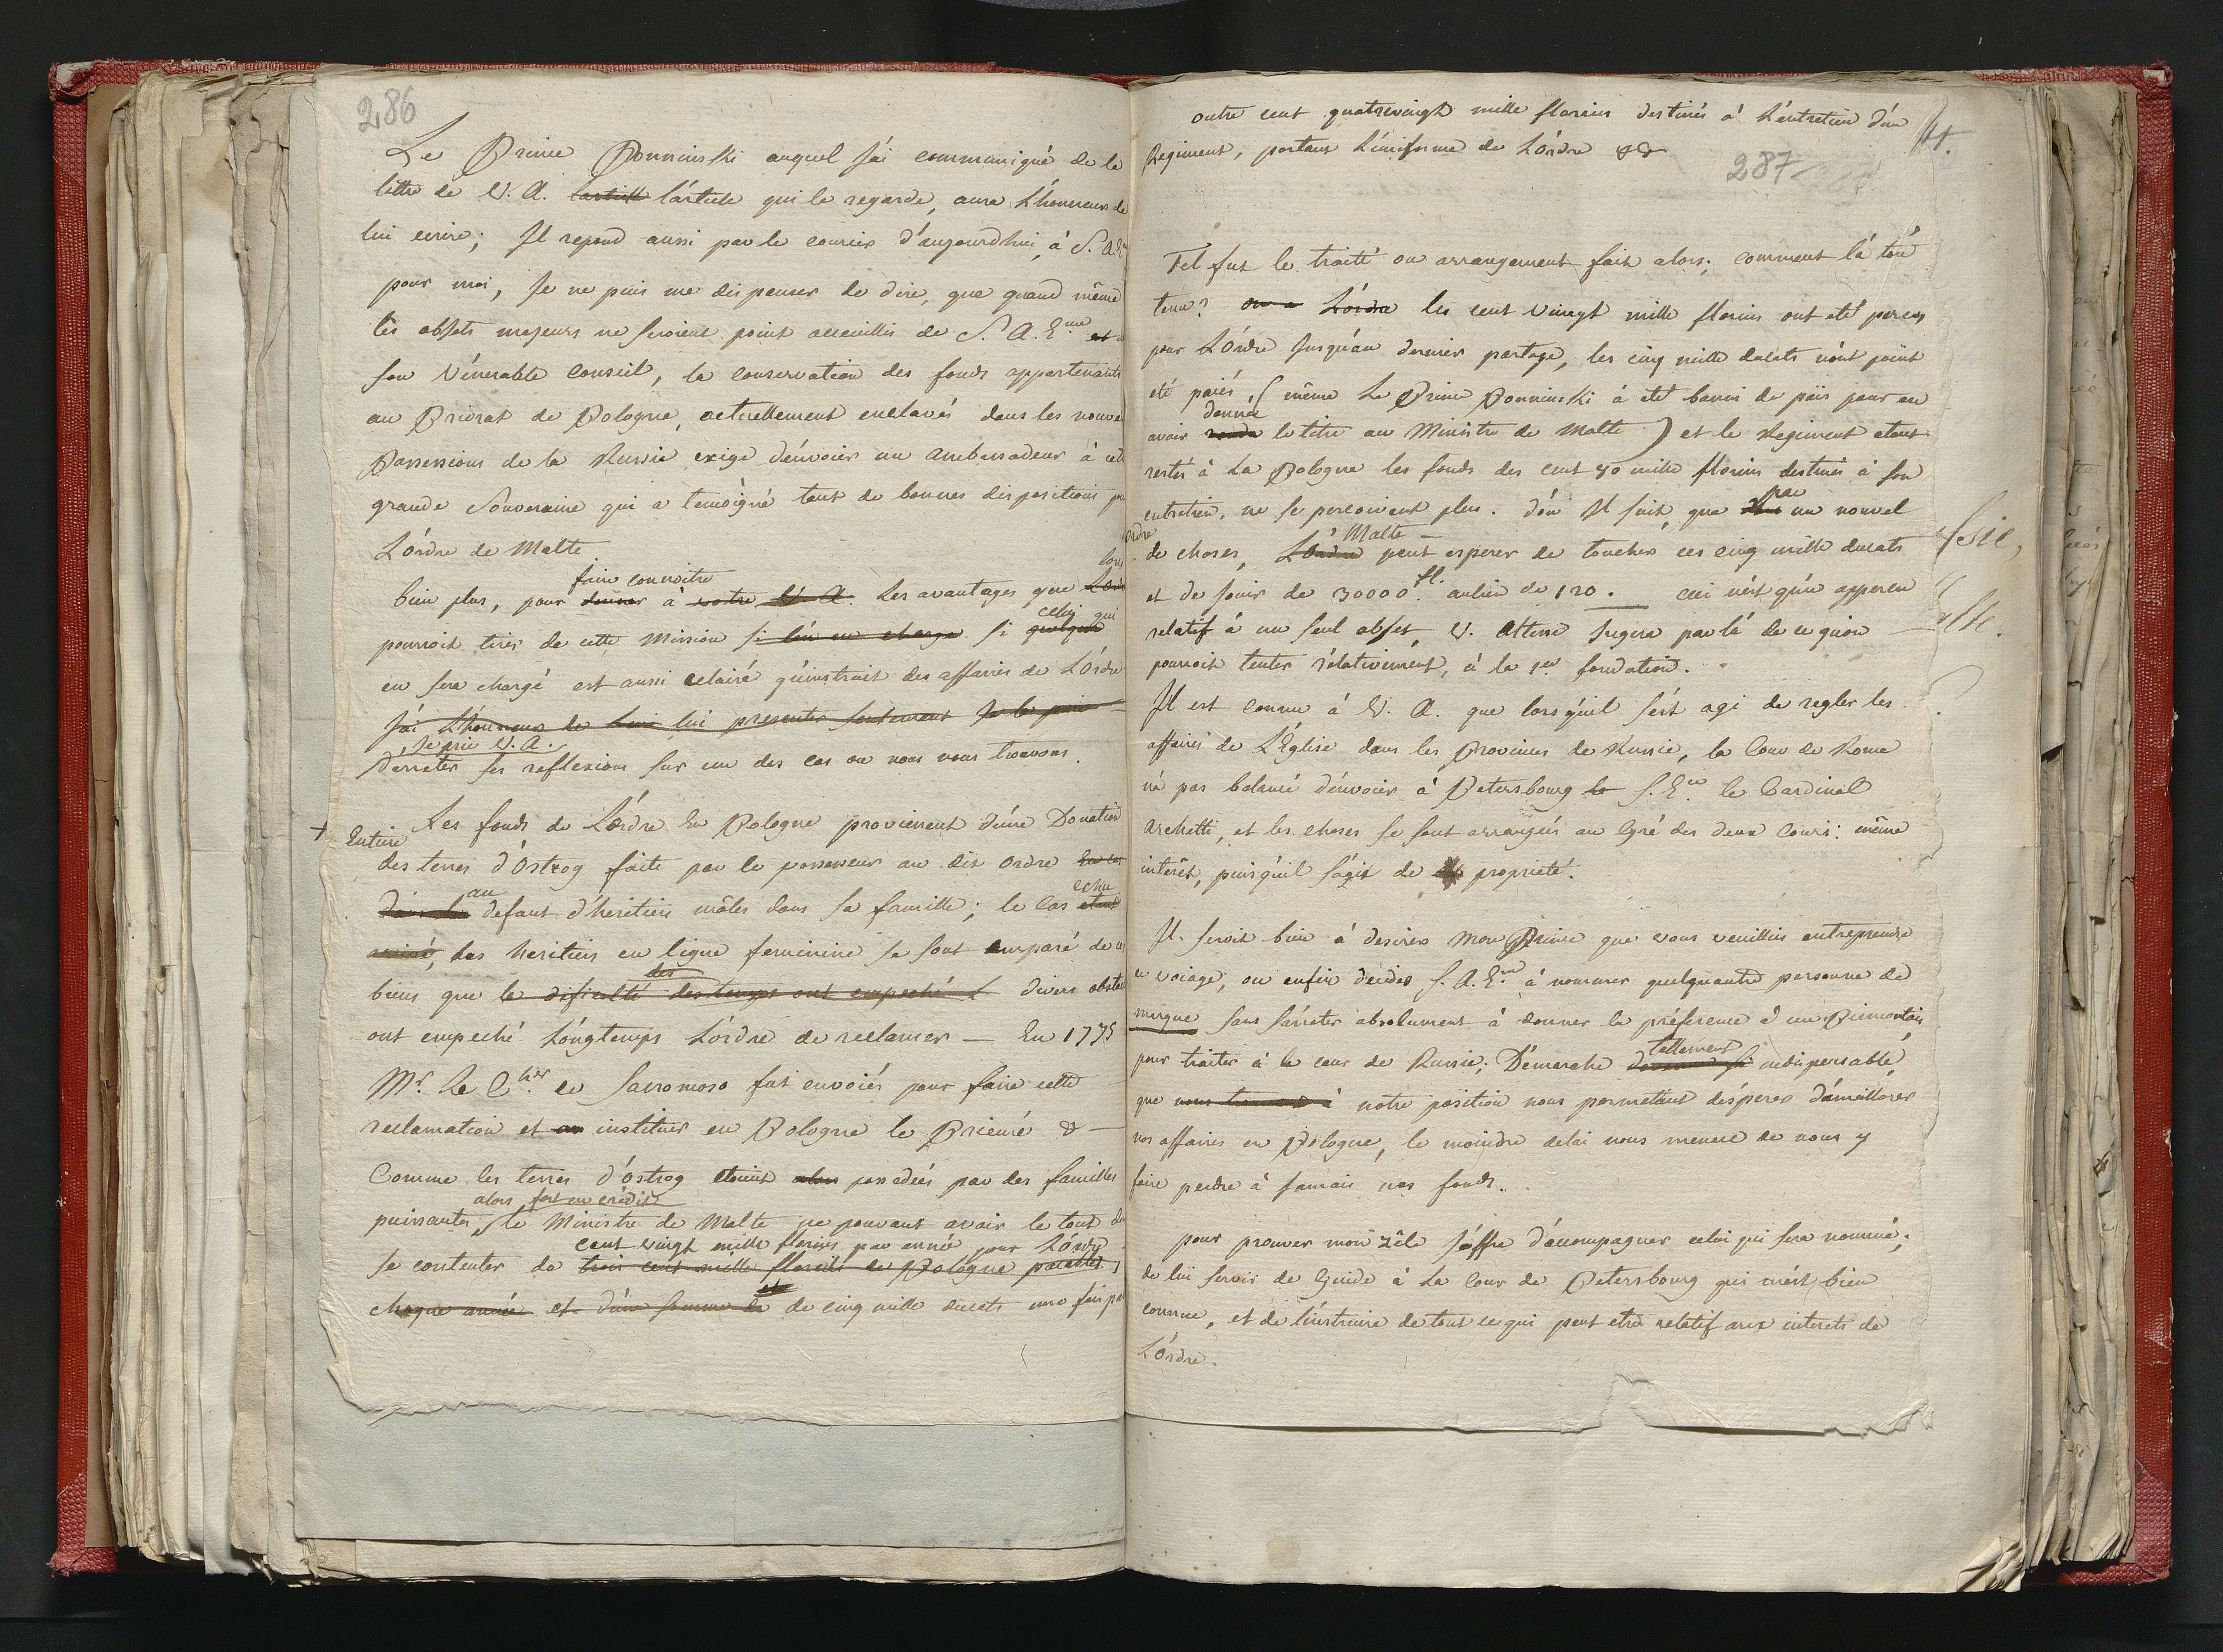 286
Le Prince Poninski auquel j'ai communiqué de la
lettre de V. A. l'article l'article qui le regarde, aura L'honneur de
lui ecrire; Il repond aussi par le courier d'aujourdhui, à S. A. E.
pour moi, Je ne puis me dispenser de dire, que quand même
les objets majeurs ne seroient point accueillis de S. A. E.me et
son Vénérable Conseil, la conservation des fonds appartenants
au Prieurat de Pologne, actuellement enclavés dans les nouve
Possessions de la Russie exige d'envoier un Ambassadeur à cet
grande Souveraine qui a temoigné tant de bonnes dispositions p
L'ordre de Malte.
faire connoitre
bien plus, pour donner à votre V. A. Les avantages que
celui qui
pourroit tirer de cette mission si l'on en charge si quelqun
en sera chargé est aussi eclairé qu'instruit des affaires de L'Ordre
J'ai L'honneur de lui presenter seulement Je le prie
Je prie V. A.
d'arreter ses reflexions sur un des cas ou nous nous trouvons.
Les fonds de L'Ordre En Pologne provienent d'une Donation
+ Entiere
des terres d'Ostrog faite par le possesseur au dit Ordre En cas
au
defaut d'heritiers mâles dans sa famille; le Cas etant
echu
arrivé, les heritiers en ligne feminine se sont emparé de c
des
biens que la dificulté des temps ont empeché L divers obsta
ont empeché Longtemps L'ordre de reclamer — En 1775
Mr. Le Cher de Sacromoso fut envoiés pour faire cette
reclamation et instituer en Pologne le Prieuré &
Comme les terres d'Ostrog etoient alors possedées par des familles
alors fort en crédit
puissantes, le Ministre de Malte ne pouvant avoir le tout d
cent vingt mille florins par année pour L'Ordre
se contenter de trois cent mille florins de Pologne paiables
et
chaque année et d'une somme de de cinq mille ducats une fois pa
outre cent quatrevingt mille florins destinés à L'entretien d'un
Regiment, portant L'uniforme de L'Ordre &
287
Tel fut le traité ou arrangement fait alors; comment l'a t'on
tenu? on a L'ordre les cent vingt mille florins ont eté percus
pour L'Ordre Jusqu'au dernier partage, les cinq mille ducats n'ont point
eté paiés, (même Le Prince Poninski à eté banni de païs pour en
donné
avoir rendu le titre au Ministre de Malte) et le Regiment etant
restés à La Pologne les fonds des cent 80 mille florins destinés à son
entretien, ne se percoivent plus. d'ou Il suit, que par un nouvel
ordre
Malte
de choses, L'Ordre peut esperer de toucher ces cinq mille ducats
et de jouir de 30000 fl. aulieu de 120. ceci n'est qu'un appercu
relatif à un seul objet, V. Altesse Jugera par là de ce qu'on
pourroit tenter rélativement, à la 1er fondation.
Il est connu à V. A. que lorsqu'il s'est agi de regler les
affaires de L'Eglise dans les Provinces de Russie, la Cour de Rome
n'à pas balancé d'envoier à Petersbourg le S. E.ce le Cardinal
Archetti, et les choses se sont arrangées au Gré des deux Cours: même
intérêt, puisqu'il s'agit de propriété.
Il seroit bien à desirer Mon Prince que vous veuillies entreprendre
ce voiage, ou enfin decider S. A. E.me à nommer quelquautre personne de
marque sans s'arreter absolument à donner la préference à un Piemontois
tellement
pour traiter à la cour de Russie; Démarche devenue si indispensable,
que nous trouvons à notre position nous permettant d'ésperer d'ameillorer
nos affaires en Pologne, le moindre delai nous menace de nous y
faire perdre à Jamais nos fonds.
pour prouver mon zêle J'offre d'accompagner celui qui sera nommé;
de lui servir de Guide à La Cour de Petersbourg qui m'est bien
connue, et de l'instruire de tout ce qui peut etre relatif aux interets de
L'Ordre.